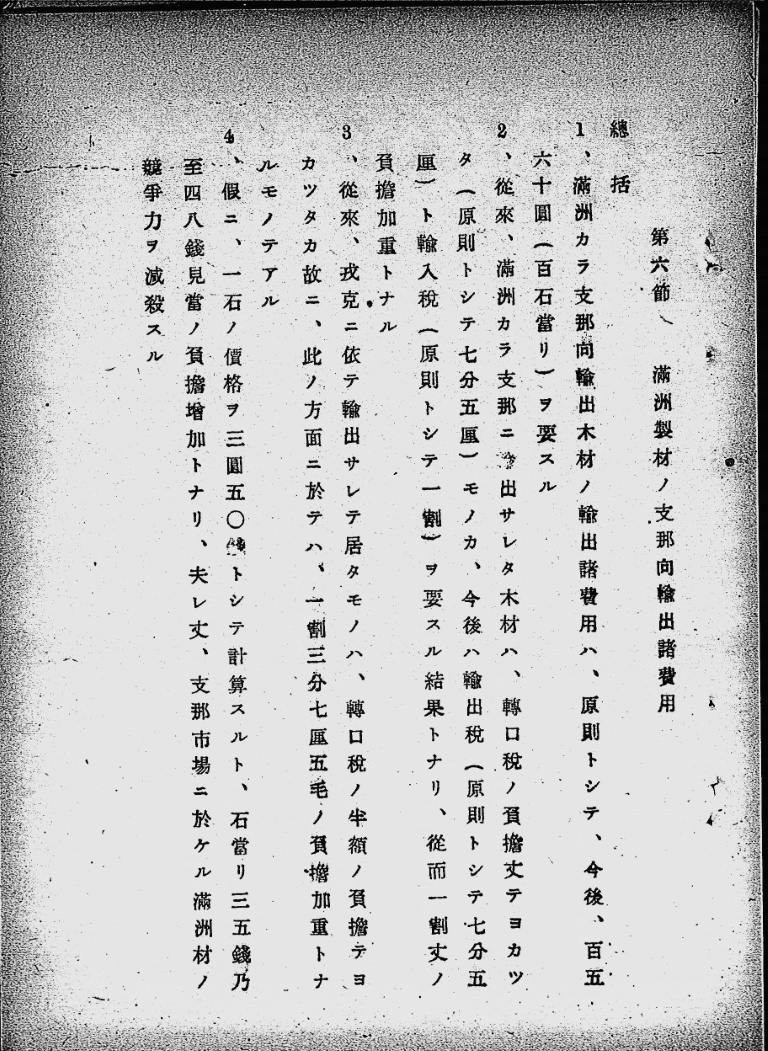 第六節、滿洲製材ノ支那向輸出諸費用
總括
1、滿洲カラ支那向輸出木材ノ輸出諸費用ハ、原則トシテ、今後、百五
六十圓(百石當リ)ヲ要スル
2、從來、滿洲カラ支那ニ出サレタ木材ハ、轉口稅ノ負擔丈テヨカツ
タ(原則トシテ七分五厘)モノカ、今後ハ輸出稅(原則トシテ七分五
厘)ト輸入稅(原則トシテ一割)ヲ要スル結果トナリ、從而一割丈ノ
負擔加重トナル
3、從來、戎克ニ依テ輸出サレテ居タモノハ、轉口稅ノ半額ノ負擔テヨ
カツタカ故ニ、此ノ方面ニ於テハ、一割三分七厘五毛ノ負擔加重トナ
ルモノテアル
4、假ニ、一石ノ價格ヲ三圓五〇トシテ計算スルト、石當リ三五錢乃
至四八錢見當ノ負擔增加トナリ、夫レ丈、支那市場ニ於ケル滿洲材ノ
競爭力ヲ減殺スル